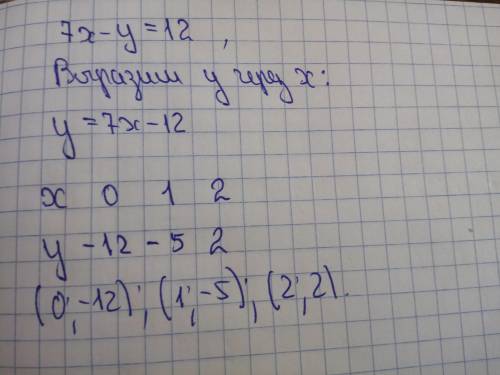 7x-y=12,
Выразим y через x:
y=7x-12
x 0 1 2
y -12 -5 2
(0;-12); (1;-5); (2;2).